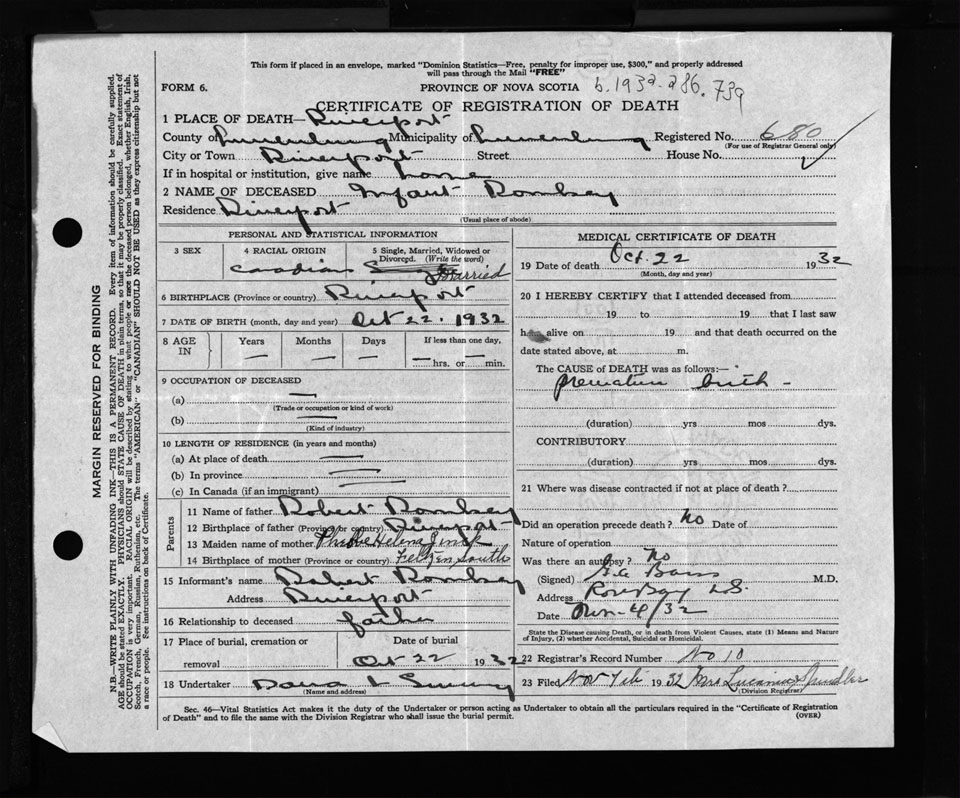 This form if placed in an envelope, marked "Dominion Statistics—Free, penalty for improper use, $300," and properly addressed
will pass through the Mail "FREE"
FORM 6. PROVINCE OF NOVA SCOTIA b. 1932-286.739
CERTIFICATE OF REGISTRATION OF DEATH
1 PLACE OF DEATH— Riverport
County of Lunenburg Municipality of Lunenburg Registered No. 680
(For use of Registrar General only)
City or Town Riverport Street House No.
If in hospital or institution, give name home
2 NAME OF DECEASED Infant Romkey
Residence Riverport
(Usual place of abode)
PERSONAL AND STATISTICAL INFORMATION
3 SEX 4 RACIAL ORIGIN 5 Single, Married, Widowed or
Divorced. (Write the word)
Canadian Married
6 BIRTHPLACE (Province or country) Riverport
7 DATE OF BIRTH (month, day and year) Oct 22. 1932
8 AGE IN Years Months Days If less than one day,
hrs. or min.
9 OCCUPATION OF DECEASED
(a)
(Trade or occupation or kind of work)
(b)
(Kind of industry)
10 LENGTH OF RESIDENCE (in years and months)
(a) At place of death
(b) In province
(c) In Canada (if an immigrant)
Parents
11 Name of father Robert Romkey
12 Birthplace of father (Province or country) Riverport
13 Maiden name of mother Phebe Helena Zinck
14 Birthplace of mother (Province or country) Feltzen South
15 Informant's name Robert Romkey
Address Riverport
16 Relationship to deceased father
17 Place of burial, cremation or Date of burial
removal Oct 22 1932
18 Undertaker Dana L
(Name and address)
MEDICAL CERTIFICATE OF DEATH
19 Date of death Oct. 22 1932
(Month, day and year)
20 I HEREBY CERTIFY that I attended deceased from
19 to 19 that I last saw
h alive on 19 and that death occurred on the
date stated above, at m.
The CAUSE of DEATH was as follows:—
premature birth -
(duration) yrs mos dys.
CONTRIBUTORY
(duration) yrs mos dys.
21 Where was disease contracted if not at place of death?
Did an operation precede death? No Date of
Nature of operation
Was there an autopsy? No
(Signed) M.D.
Address Rose Bay N.S.
Date Nov-4/32
State the Disease causing Death, or in death from Violent Causes, state (1) Means and Nature
of Injury, (2) whether Accidental, Suicidal or Homicidal.
22 Registrar's Record Number No 10
23 Filed Nov 7th 1932 Mrs Lucania Spindler
(Division Registrar)
Sec. 46—Vital Statistics Act makes it the duty of the Undertaker or person acting as Undertaker to obtain all the particulars required in the "Certificate of Registration
of Death" and to file the same with the Division Registrar who shall issue the burial permit.
(OVER)
MARGIN RESERVED FOR BINDING
N.B.—WRITE PLAINLY WITH UNFADING INK—THIS IS A PERMANENT RECORD. Every item of information should be carefully supplied.
AGE should be stated EXACTLY. PHYSICIANS should STATE CAUSE OF DEATH in plain terms, so that it may be properly classified. Exact statement of
OCCUPATION is very important. RACIAL ORIGIN will be described by stating to what people or race the deceased person belonged, whether English, Irish,
Scotch, French, German, Russian, Ruthenian, etc. The terms "AMERICAN" or "CANADIAN" SHOULD NOT BE USED as they express citizenship but not
a race or people. See instructions on back of Certificate.